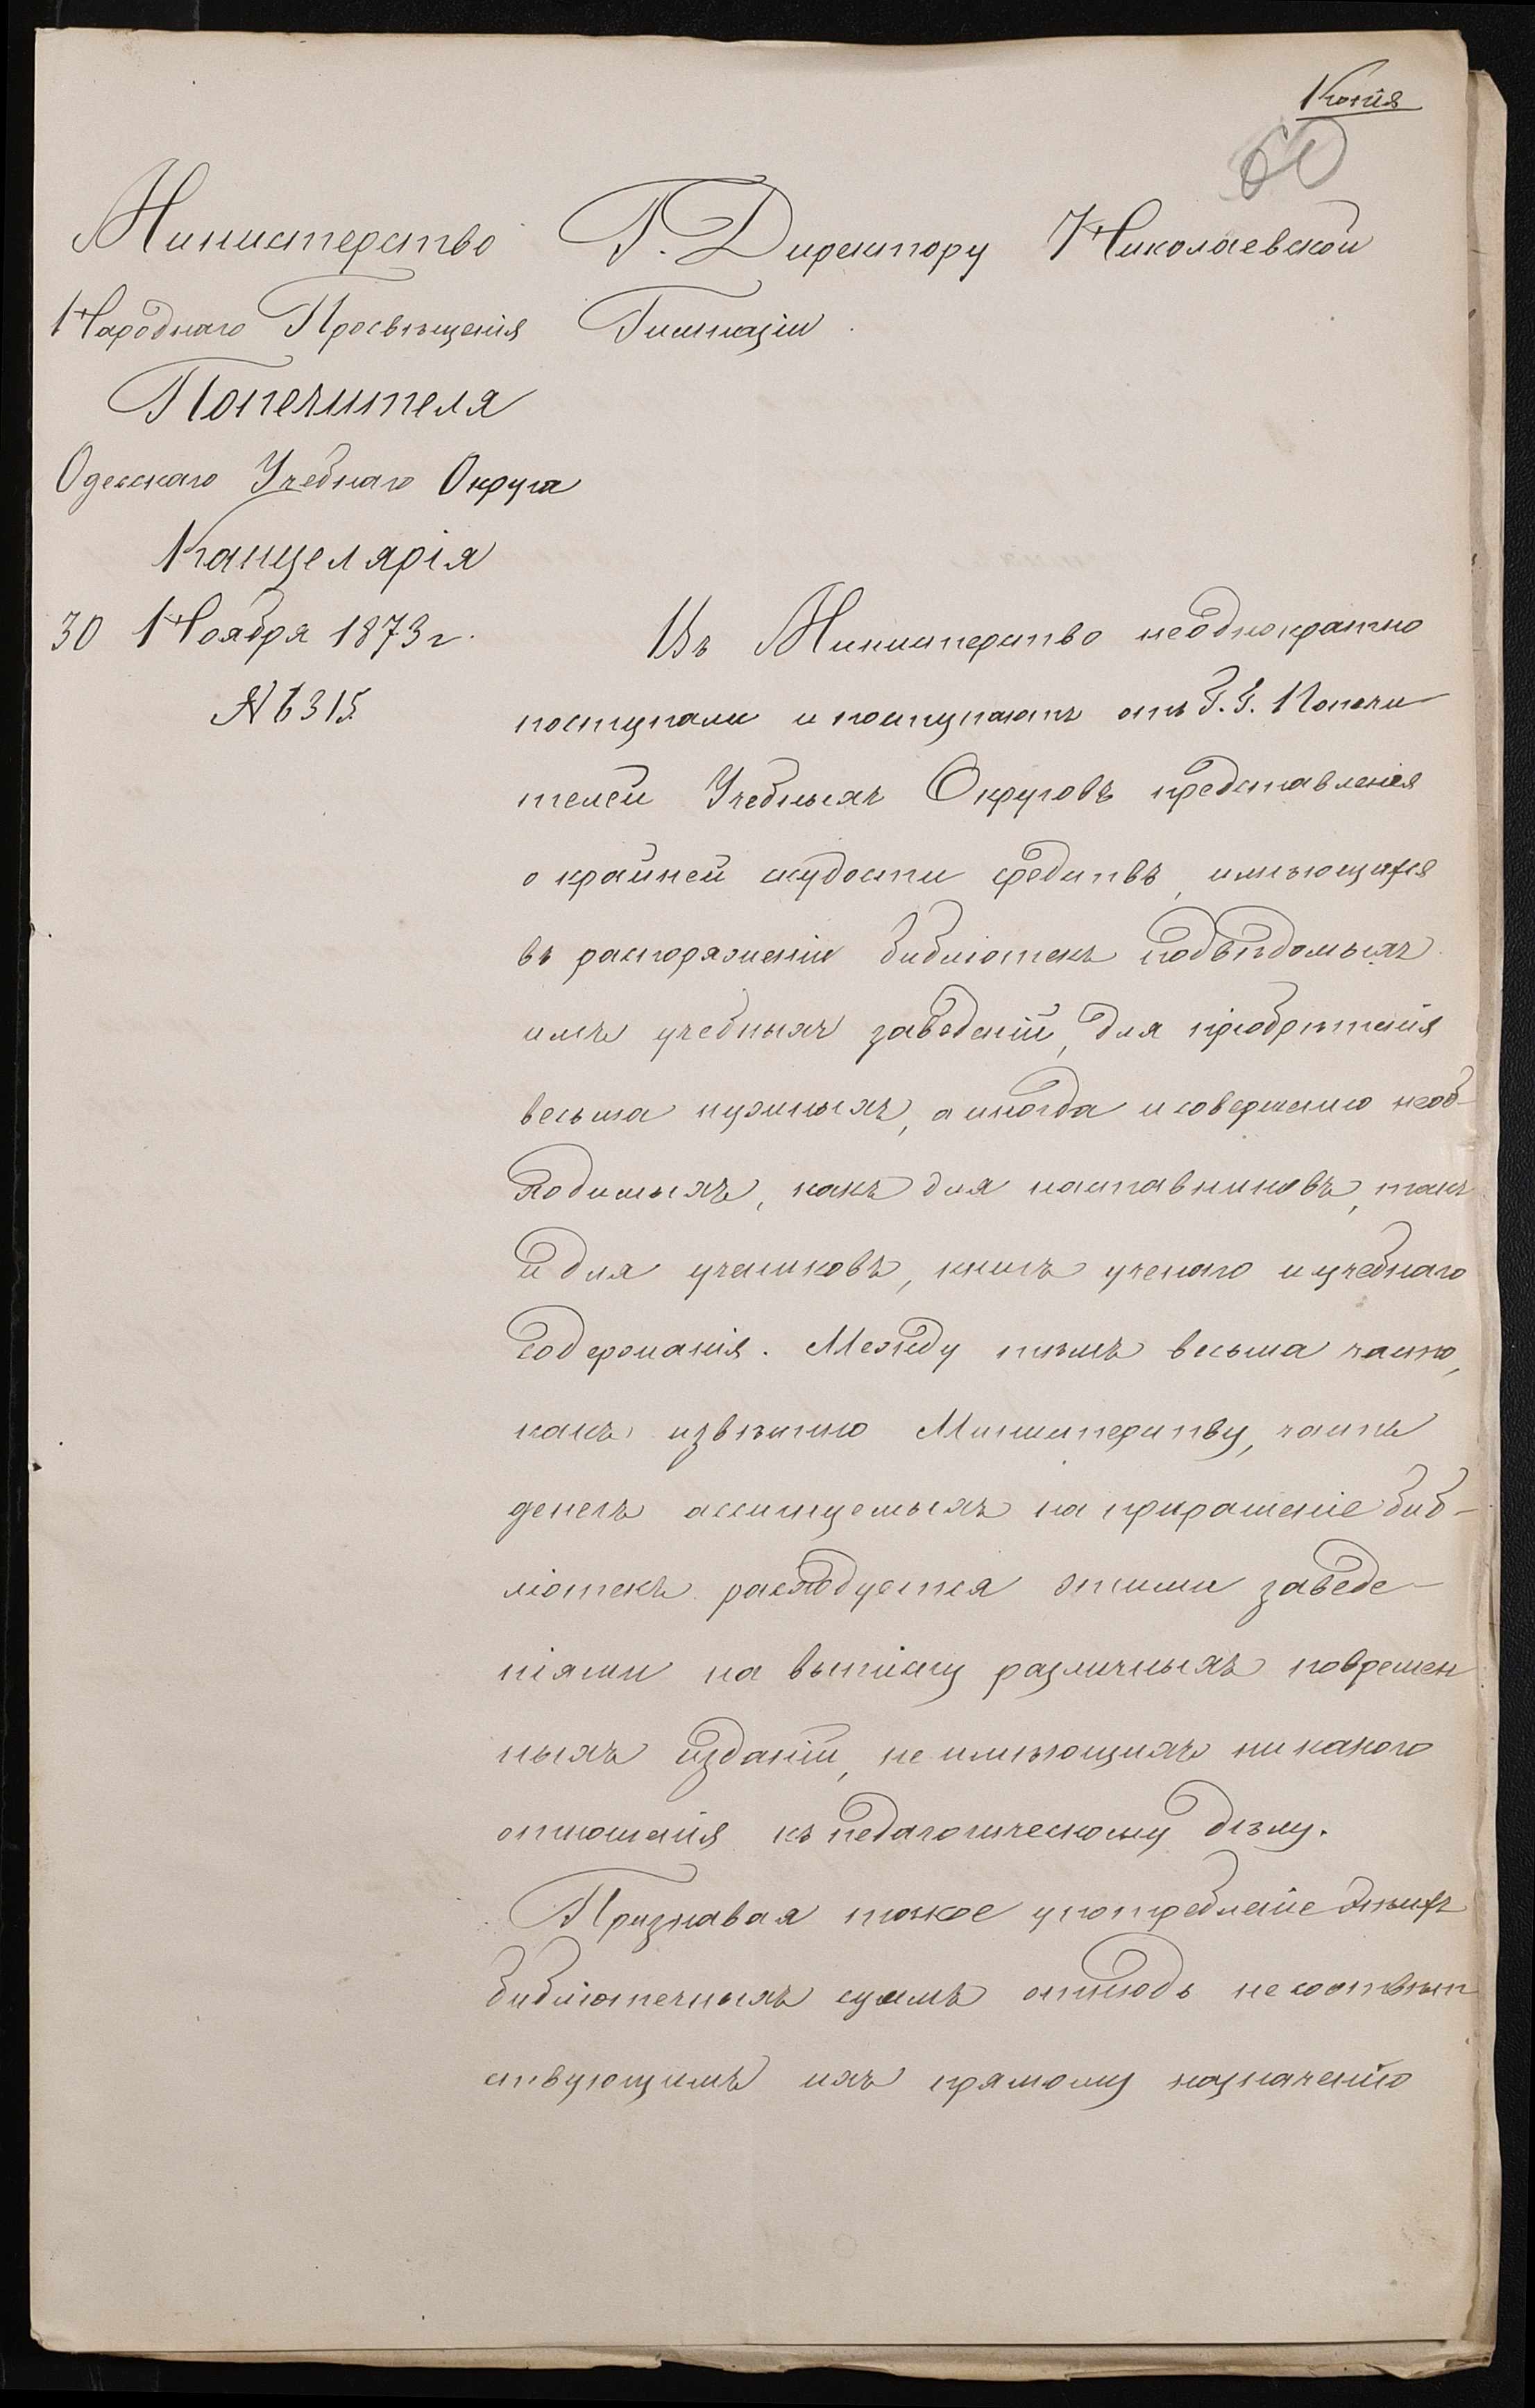 Копія
60
Министерство
Народнаго Просвѣщенія
Попечителя
Одесскаго Учебнаго Округа
Канцелярія
30 Ноября 1873 г.
№ 6315
Г. Директору Николаевской
Гимназіи.
Въ Министерство неоднократно
поступали и поступаютъ отъ Г. Г. Попечи
телей Учебныхъ Округовъ представленія
о крайней скудости средствъ, имѣющихся
въ распоряженіи библіотекъ подвѣдомыхъ
имъ учебныхъ заведеній, для пріобрѣтенія
весьма нужныхъ, а иногда и совершенно необ-
ходимыхъ, какъ для наставниковъ, такъ
и для учениковъ, книгъ ученаго и учебнаго
содержанія. Между тѣмъ весьма часто,
какъ извѣстно Министерству, часть
денегъ ассигуемыхъ на приращеніе биб-
ліотекъ расходуется этими заведе-
ніями на выписку различныхъ повремен
ныхъ изданій, не имѣющихъ никакого
отношенія къ педагогическому дѣлу.
Признавая такое употребленіе этихъ
библіотечныхъ суммъ отнюдь не соотвѣт
ствующимъ ихъ прямому назначенію